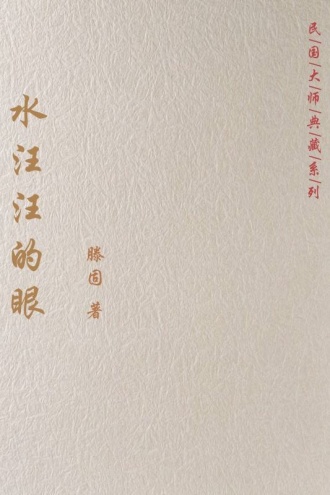 民国大师典藏系列
水汪汪的眼
滕固 著